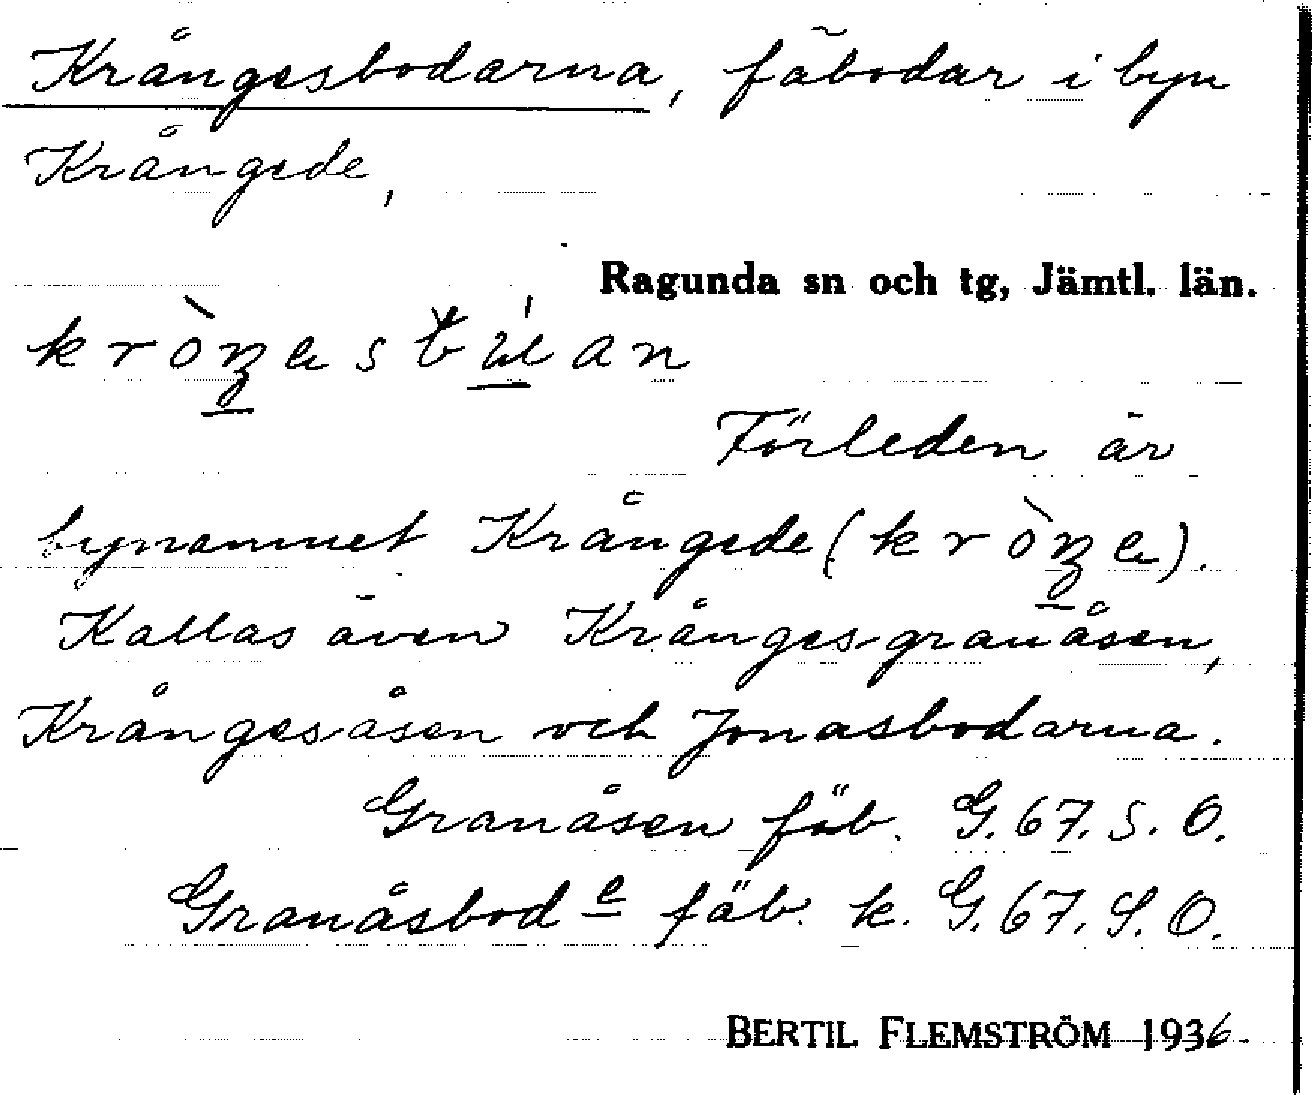 Krångesbodarna, fäbodar i byn
Krångede,
Ragunda sn och tg, Jämtl. län.
Förleden är
bynamnet Krångede
Kallas även Krångesgranåsen,
Krångesåsen och Jonasbodarna.
Granåsen fäb. G. 67. S. O.
Granåsbod e fäb. k. G. 67. S. O.
BERTIL FLEMSTRÖM 1936